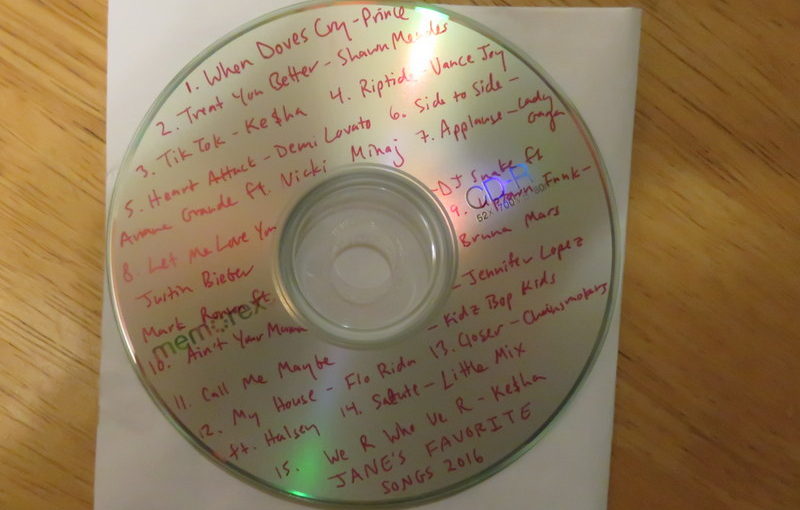 1. When Doves Cry - Prince
2. Treat You Better - Shawn Mendes
3. TiK ToK - Ke$ha 4. Riptide - Vance Joy
5. Heart Attack - Demi Lovato 6. Side to Side -
Ariana Grande ft. Nicki Minaj 7. Applause - Lady Gaga
8. Let Me Love You - DJ Snake ft
Justin Bieber 9. Uptown Funk -
Mark Ronson ft. Bruna Mars
10. Ain't Your Mama - Jennifer Lopez
11. Call Me Maybe - Kidz Bop Kids
12. My House - Flo Rida 13. Closer - Chainsmokers
ft. Halsey 14. Salute - Little Mix
15. We R Who We R - Ke$ha
JANE'S FAVORITE
SONGS 2016
memorex
CD-R
52x 700